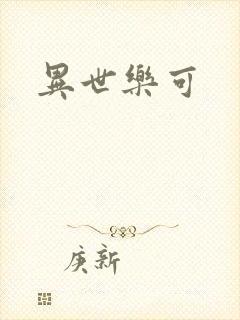 異世樂可
庚新